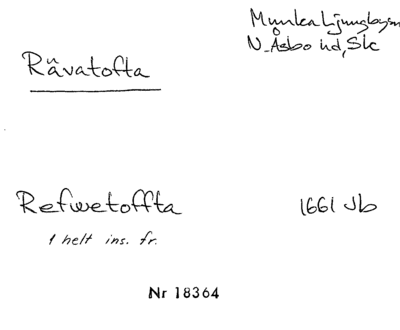 Munka Ljungbysn
N. Åsbo hd, Sk
Rävatofta
Refwetoffta 1661 Jb
1 helt ins. fr.
Nr 18364